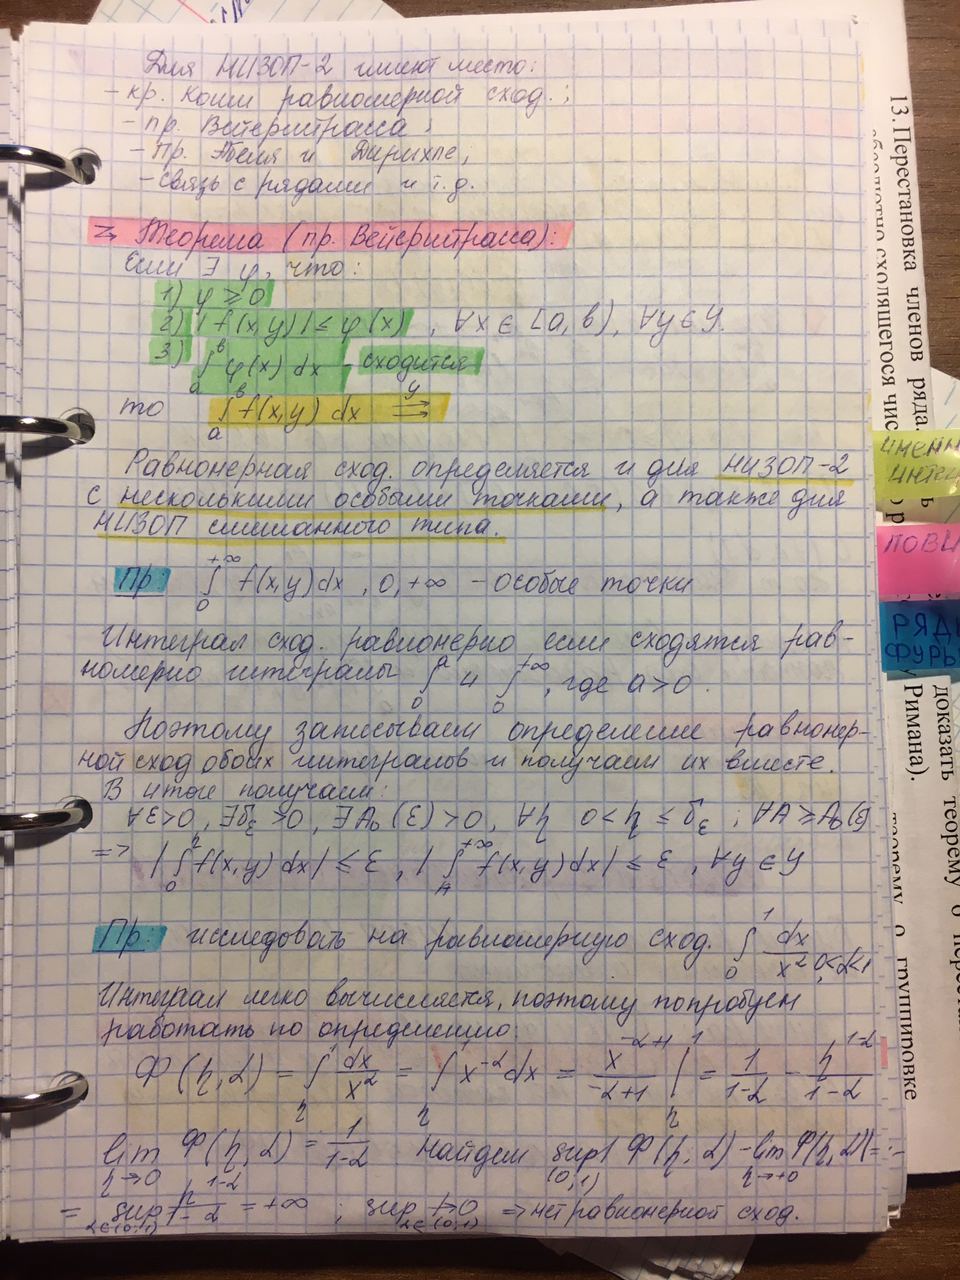 Для НИЗОП-2 имеют место:
- кр. Коши равномерной сход.;
- пр. Вейерштрасса;
- Пр. Абеля и Дирихле;
- связь с рядами и т.д.
Теорема (пр. Вейерштрасса):
Если ∃ φ, что:
1) φ ≥ 0
2) |f(x,y)| ≤ φ(x) , ∀x ∈ [a, b), ∀y ∈ Y.
3) ∫ₐᵇ φ(x) dx - сходится
то ∫ₐᵇ f(x,y) dx ⇉ y
Равномерная сход. определяется и для НИЗОП-2
с несколькими особыми точками, а также для
НИЗОП смешанного типа.
Пр: ∫₀^{+∞} f(x,y)dx , 0, +∞ - особые точки
Интеграл сход. равномерно если сходятся рав-
номерно интегралы ∫₀^a и ∫₀^{+∞}, где a>0.
Поэтому записываем определение равномер-
ной сход обоих интегралов и получаем их вместе.
В итоге получаем:
∀ε>0, ∃δ_ε>0, ∃A₀(ε)>0, ∀η 0<η≤δ_ε ; ∀A≥A₀(ε)
=> |∫₀^η f(x,y) dx| ≤ ε , |∫_A^{+∞} f(x,y) dx| ≤ ε , ∀y ∈ Y
Пр: исследовать на равномерную сход. ∫₀¹ dx/x^α, 0<α<1
Интеграл легко вычисляется, поэтому попробуем
работать по определению:
Ф(η,α) = ∫_η^1 dx/x^α = ∫_η^1 x^{-α}dx = x^{-α+1}/(-α+1) |_η^1 = 1/(1-α) - η^{1-α}/(1-α)
lim_{η→0} Ф(η,α) = 1/(1-α) Найдем sup_{(0,1)} | Ф(η,α) - lim_{η→+0} Ф(η,α)| =
= sup_{α∈(0,1)} η^{1-α}/(1-α) = +∞ ; sup_{α∈(0,1)} ↛ 0 => нет равномерной сход.
13. Перестановка членов ряда.
абсолютно сходящегося чис
доказать теорему о перестан
Римана).
теорему о группировке
имен
интег
ПОВ
РЯД
ФУРЬ